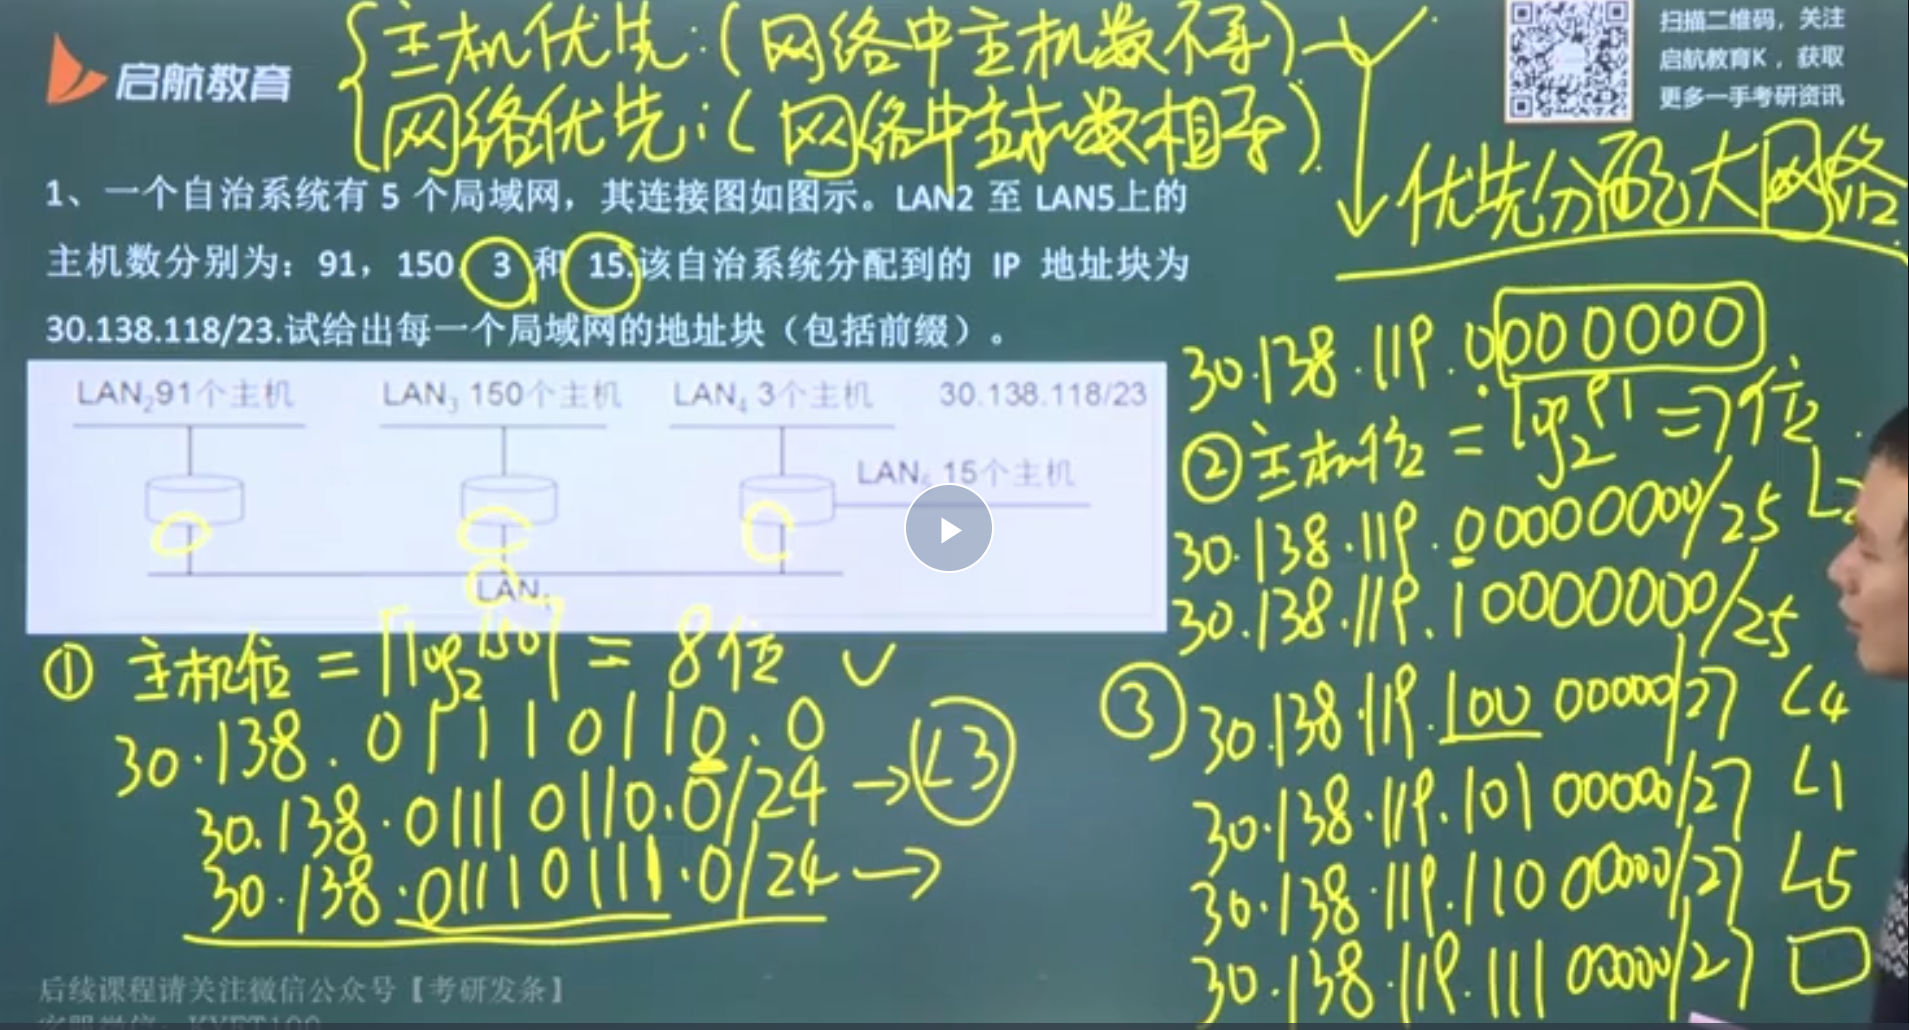 主机优先:(网络中主机数不等)
网络优先:(网络中主机数相等)
启航教育
扫描二维码，关注
启航教育K，获取
更多一手考研资讯
优先分配大网络
1、一个自治系统有 5 个局域网，其连接图如图示。LAN2 至 LAN5上的
主机数分别为：91，150，3 和 15.该自治系统分配到的 IP 地址块为
30.138.118/23.试给出每一个局域网的地址块（包括前缀）。
LAN₂91个主机
LAN₃ 150个主机
LAN₄ 3个主机
30.138.118/23
LAN₅ 15个主机
LAN₁
① 主机位 = ⌈log₂150⌉ = 8位
30.138.01110110.0
30.138.01110110.0/24 → L3
30.138.01110111.0/24 →
30.138.119.0000000
②主机位 = ⌈log₂91⌉ = 7位
30.138.119.00000000/25 L2
30.138.119.10000000/25
③ 30.138.119.100 00000/27 L4
30.138.119.101 00000/27 L1
30.138.119.110 00000/27 L5
30.138.119.111 00000/27
后续课程请关注微信公众号【考研发条】